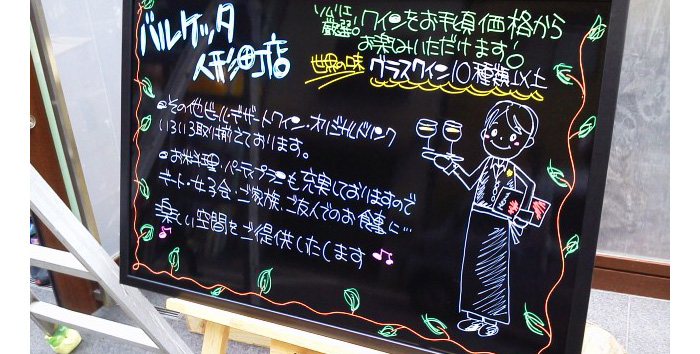 バルケッタ
人形町店
ソムリエ厳選!ワインをお手頃価格から
お楽しみいただけます!
世界の味 グラスワイン10種類以上
その他ビール・デザートワイン・オリジナルドリンク
いろいろ取り揃えております。
お料理・パーティプランも充実しておりますので
デート・女子会・ご家族、ご友人でのお食事に…
楽しい空間をご提供いたします